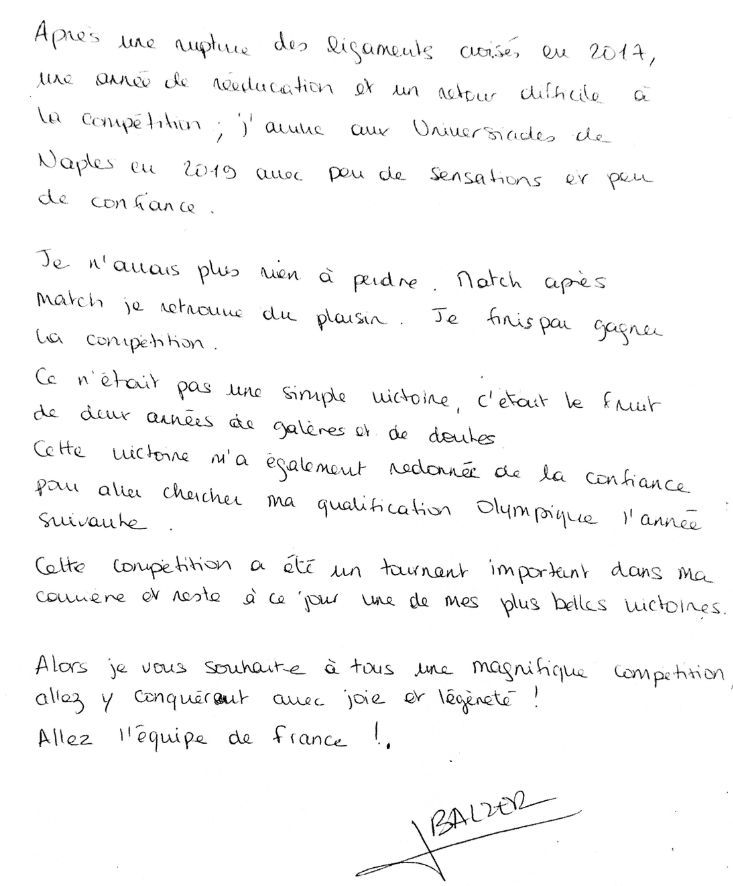 Après une rupture des ligaments croisés en 2017,
une année de rééducation et un retour difficile à
la compétition ; j'arrive aux Universiades de
Naples en 2019 avec peu de sensations et peu
de confiance.
Je n'avais plus rien à perdre. Match après
match je retrouve du plaisir. Je finis par gagner
la compétition.
Ce n'était pas une simple victoire, c'était le fruit
de deux années de galères et de doutes
Cette victoire m'a également redonnée de la confiance
pour aller chercher ma qualification Olympique l'année
suivante.
Cette compétition a été un tournant important dans ma
carrière et reste à ce jour une de mes plus belles victoires.
Alors je vous souhaite à tous une magnifique compétition,
allez y conquérant avec joie et légèreté !
Allez l'équipe de France !.
BALZER